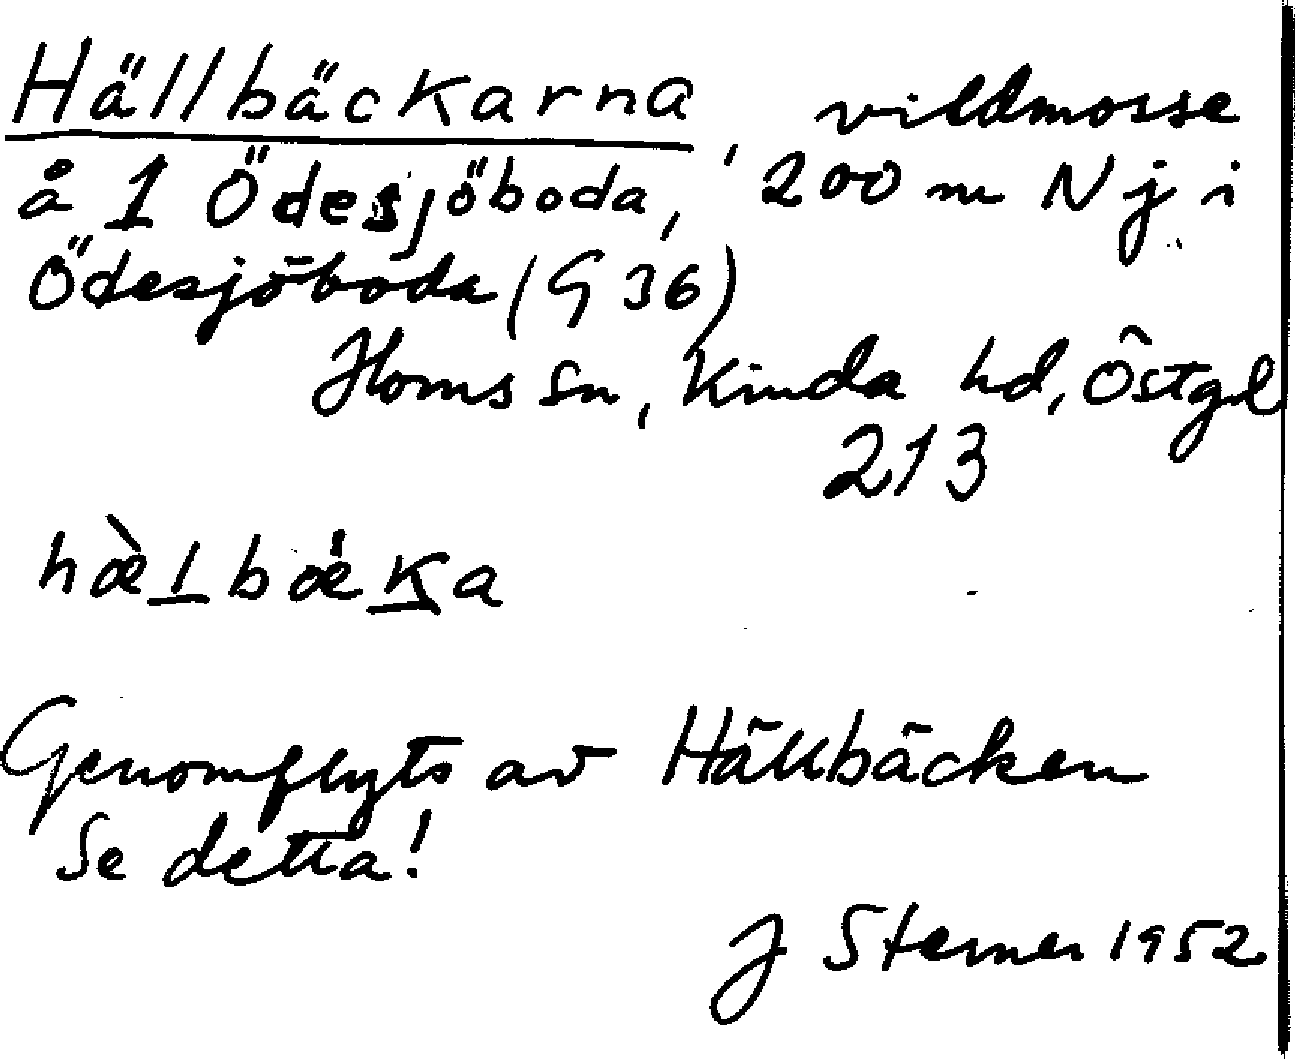 Hällbäckarna, vildmosse
å 1 Ödesjöboda, 200 m N j i
Ödesjöboda (G 36)
Horns sn, Kinda hd, Östgl
213
hæ̀lbæ̍ka
Genomflyts av Hällbäcken
Se detta!
J Sterner 1952